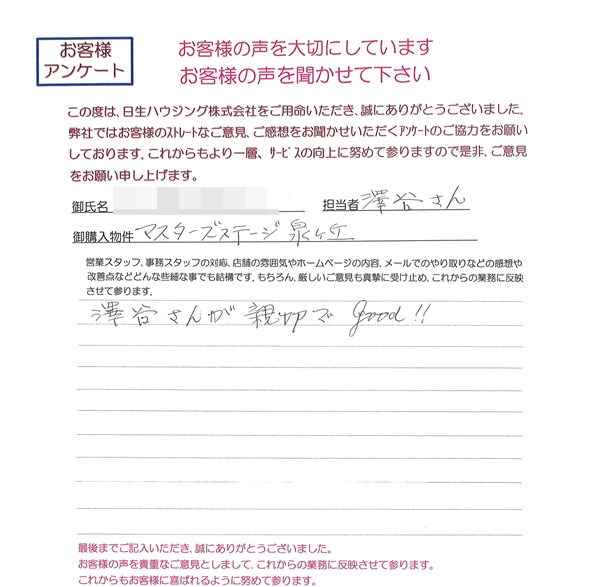 お客様
アンケート
お客様の声を大切にしています
お客様の声を聞かせて下さい
この度は、日生ハウジング株式会社をご用命いただき、誠にありがとうございました。
弊社ではお客様のストレートなご意見、ご感想をお聞かせいただくアンケートのご協力をお願い
しております。これからもより一層、サービスの向上に努めて参りますので是非、ご意見
をお願い申し上げます。
御氏名 担当者 澤谷さん
御購入物件 マスターズステージ泉ヶ丘
営業スタッフ、事務スタッフの対応、店舗の雰囲気やホームページの内容、メールでのやり取りなどの感想や
改善点などどんな些細な事でも結構です。もちろん、厳しいご意見も真摯に受け止め、これからの業務に反映
させて参ります。
澤谷さんが親切で good!!
最後までご記入いただき、誠にありがとうございました。
お客様の声を貴重なご意見としまして、これからの業務に反映させて参ります。
これからもお客様に喜ばれるように努めて参ります。